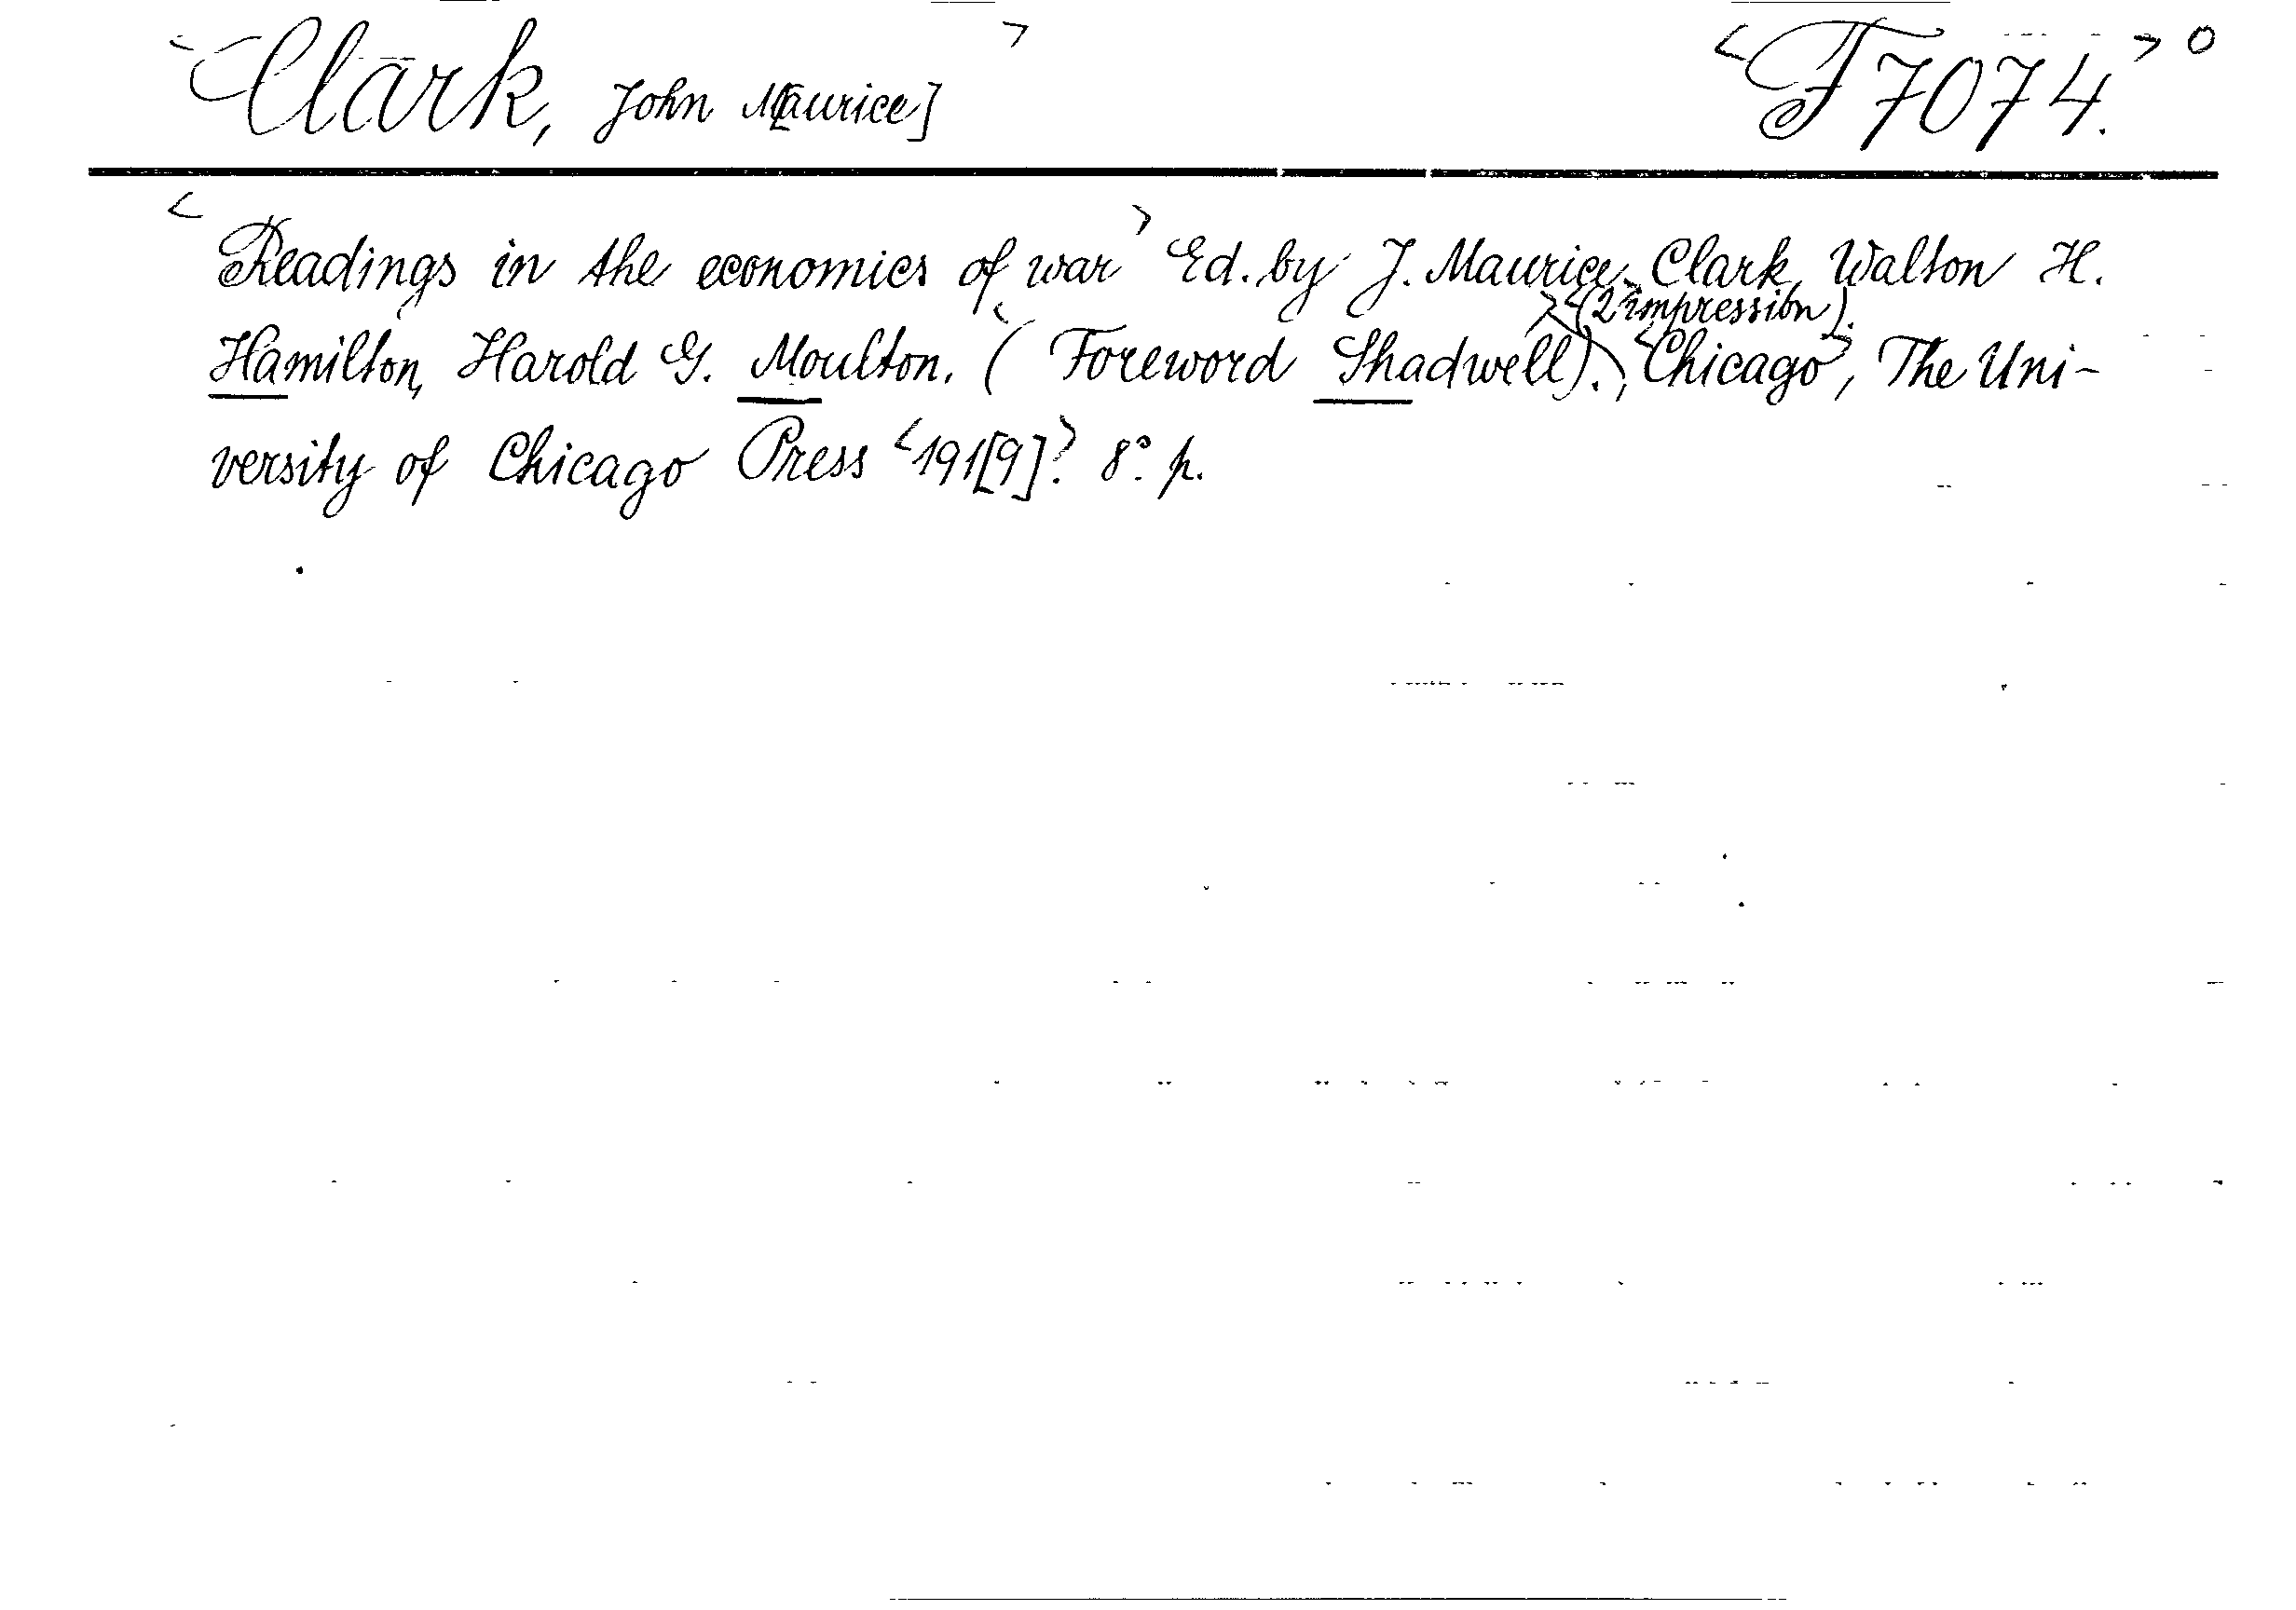 <Clark, John M[aurice]> <F 7074.> o
<Readings in the economics of war> Ed. by J. Maurice Clark, Walton H.
<(2> impression).
Hamilton, Harold G. Moulton. (Foreword Shadwell)., <Chicago>, The Uni-
versity of Chicago Press <191[9]>. 8°. p.